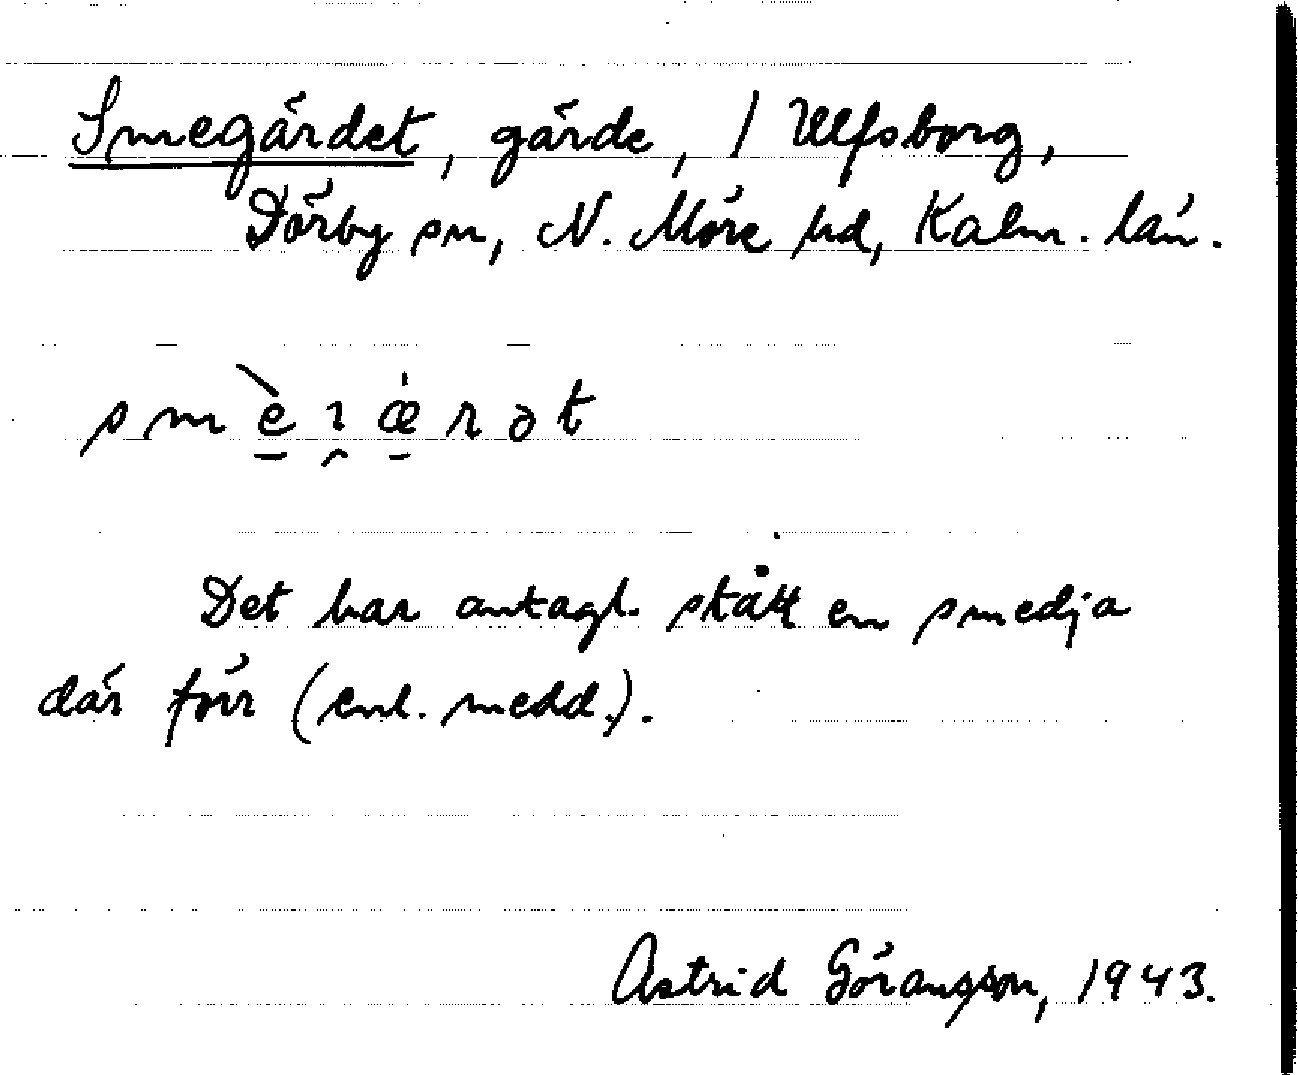 Smegärdet, gärde, / Ulfsborg,
Dörby sn, N. Möre hd, Kalm. län.
smèɿærət
Det har antagl. stått en smedja
där förr (enl. medd.).
Astrid Göransson, 1943.